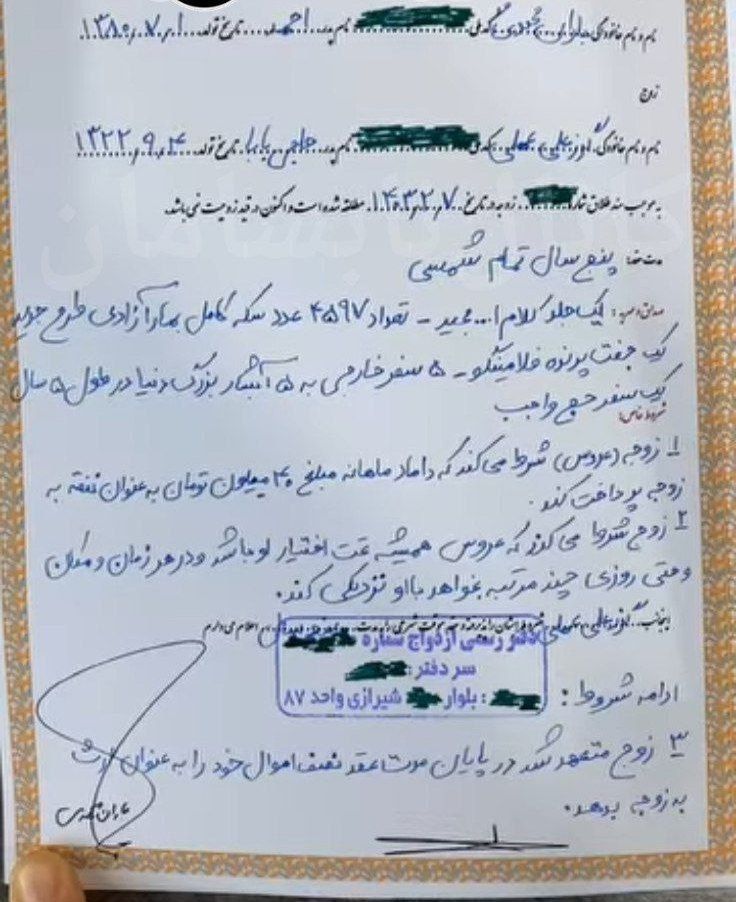 نام و نام خانوادگی: باران کد ملی نام پدر: احمد تاریخ تولد: ۱۳۸۰/۷/۱
زوج
نام و نام خانوادگی: کد ملی نام پدر: تاریخ تولد: ۱۳۲۲/۹/۴
به موجب سند طلاق شماره زوجه در تاریخ ۱۴۰۳/۲/۷ مطلقه شده است و اکنون در قید زوجیت نمی باشد.
پنج سال تمام شمسی
یک جلد کلام ا... مجید - تعداد ۴۵۹۷ عدد سکه کامل بهار آزادی طرح جدید
یک جفت پرنده فلامینگو - ۵ سفر خارجی به ۵ آبشار بزرگ دنیا در طول ۵ سال
یک سفر حج واجب
شروط خاص:
۱ زوجه (عروس) شرط می کند که داماد ماهانه مبلغ ۴۰ میلیون تومان به عنوان نفقه به
زوجه پرداخت کند.
۲ زوج شرط می کند که عروس همیشه تحت اختیار او باشد و در هر زمان و مکان
و حتی روزی چند مرتبه بخواهد با او نزدیکی کند.
اینجانب اعلام می دارم
دفتر رسمی ازدواج شماره
سر دفتر:
بلوار شیرازی واحد ۸۷
ادامه شروط:
۳ زوج متعهد شد در پایان مدت عقد نصف اموال خود را به عنوان ارث
به زوجه بدهد.